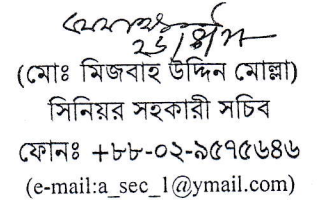 (মোঃ মিজবাহ উদ্দিন মোল্লা)
সিনিয়র সহকারী সচিব
ফোনঃ +৮৮-০২-৯৫৭৫৬৪৬
(e-mail:a_sec_1@ymail.com)